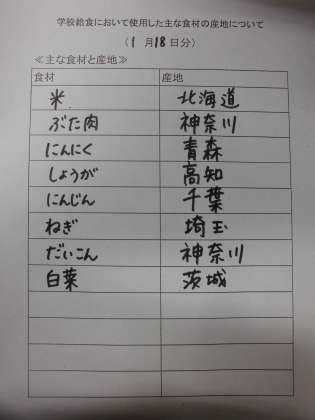 学校給食において使用した主な食材の産地について
(1月18日分)
≪主な食材と産地≫
食材 産地
米 北海道
ぶた肉 神奈川
にんにく 青森
しょうが 高知
にんじん 千葉
ねぎ 埼玉
だいこん 神奈川
白菜 茨城